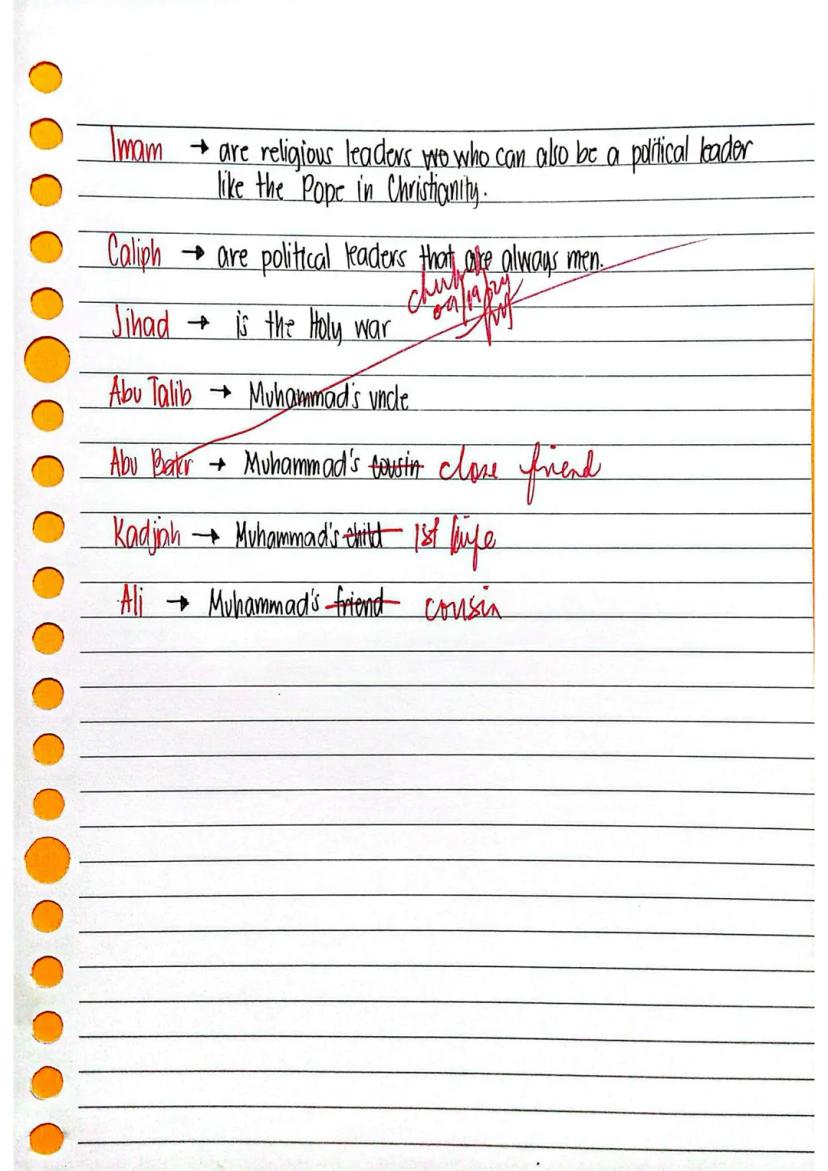 Imam → are religious leaders wo who can also be a political leader
like the Pope in Christianity.
Caliph → are political leaders that are always men.
Jihad → is the Holy war
Abu Talib → Muhammad's uncle
Abu Bakr → Muhammad's cousin close friend
Kadjah → Muhammad's child 1st
Ali → Muhammad's friend cousin